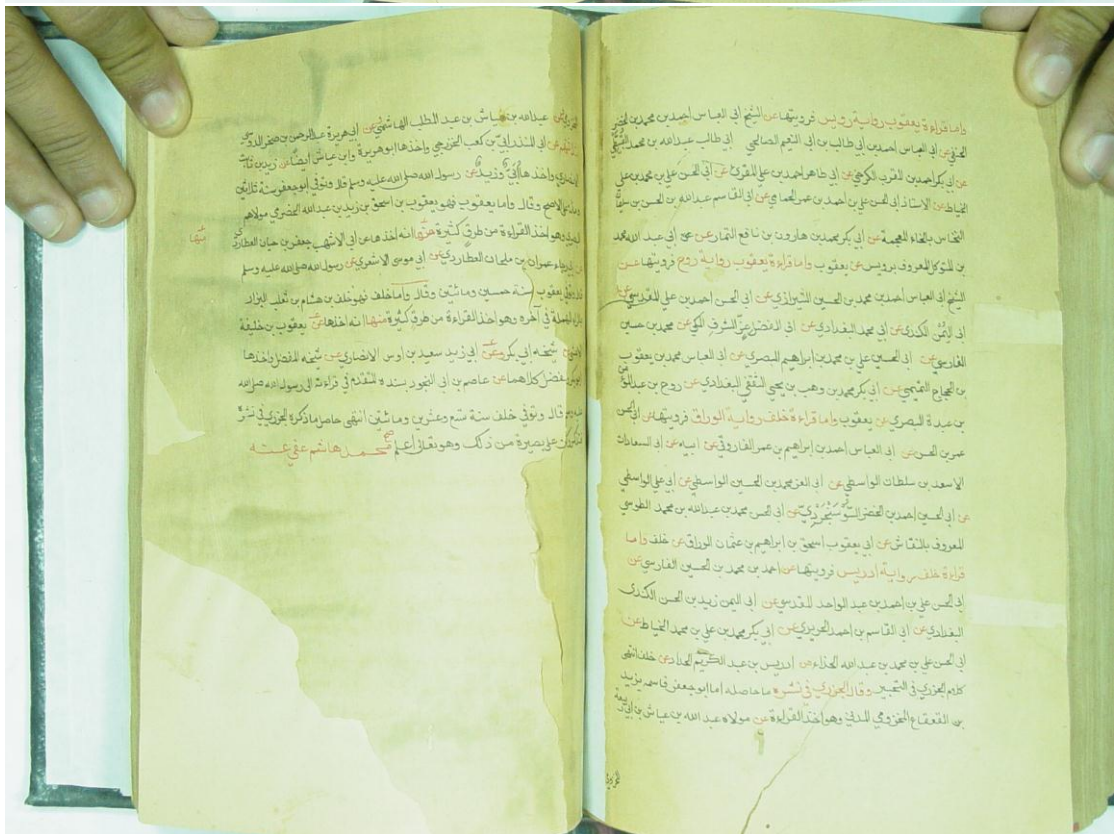 واما قراءة يعقوب رواية رويس فرويتها عن الشيخ ابي العباس احمد بن محمد بن الخضر
الحنفي عن ابي العباس احمد بن ابي طالب بن ابي النعيم الصالحي ابي طالب عبد الله بن محمد
عن ابي بكر احمد بن المقرب الكرخي عن ابي طاهر احمد بن علي المقرئ عن ابي الحسن علي بن محمد بن علي
الخياط عن الاستاذ ابي الحسن علي بن احمد بن عمر الحمامي عن ابي القاسم عبد الله بن الحسن بن
النخاس بالخاء المعجمة عن ابي بكر محمد بن هارون بن نافع التمار عن ابي عبد الله محمد
بن المتوكل المعروف برويس عن يعقوب واما قراءة يعقوب رواية روح فرويتها عن
الشيخ ابي العباس احمد بن محمد بن الحسين الشيرازي عن ابي الحسن احمد بن علي المقدسي عن
ابي اليمن الكندي عن ابي محمد البغدادي عن ابي الفضل عز الشرف المكي عن محمد بن حسين
الفارسي عن ابي الحسين علي بن محمد بن ابراهيم البصري عن ابي العباس محمد بن يعقوب
بن الحجاج التميمي عن ابي بكر محمد بن وهب بن يحيى الثقفي البغدادي عن روح بن عبد المؤمن
بن عبدة البصري عن يعقوب واما قراءة خلف رواية الوراق فرويتها عن ابي الحسن
عمر بن الحسن عن ابي العباس احمد بن ابراهيم بن عمر الفاروثي عن ابيه عن ابي السعادات
الاسعد بن سلطان الواسطي عن ابي العز محمد بن الحسين الواسطي عن ابي علي الواسطي
عن ابي الحسين احمد بن الخضر السوسنجردي عن ابي الحسن محمد بن عبد الله بن محمد الطوسي
المعروف بالنقاش عن ابي يعقوب اسحق بن ابراهيم بن عثمان الوراق عن خلف واما
قراءة خلف رواية ادريس فرويتها عن احمد بن محمد بن الحسين الفارسي عن
ابي الحسن علي بن احمد بن عبد الواحد المقدسي عن ابي اليمن زيد بن الحسن الكندي
البغدادي عن ابي القاسم بن احمد الحريري عن ابي بكر محمد بن علي بن محمد الخياط عن
ابي الحسن علي بن محمد بن عبد الله الحذاء عن ادريس بن عبد الكريم الحداد عن خلف انتهى
كلام الجزري في التحبير وقال الجزري في نشره ما حاصله اما ابو جعفر فاسمه يزيد
بن القعقاع المخزومي المدني وهو اخذ القراءة عن مولاه عبد الله بن عياش بن ابي ربيعة
عبد الله بن عباس بن عبد المطلب الهاشمي عن ابي هريرة عبد الرحمن بن صخر الدوسي
عن ابي المنذر ابي بن كعب الخزرجي واخذها ابو هريرة وابن عباس ايضا عن زيد بن ثابت
واخذها ابي وزيد عن رسول الله صلى الله عليه وسلم قال وتوفي ابو جعفر سنة ثلاثين
الاصح وقال واما يعقوب فهو يعقوب بن اسحق بن زيد بن عبد الله الحضرمي مولاهم
وهو اخذ القراءة من طرق كثيرة منها انه اخذها عن ابي الاشهب جعفر بن حيان العطاردي
منها
عمران بن ملحان العطاردي عن ابي موسى الاشعري عن رسول الله صلى الله عليه وسلم
يعقوب سنة خمسين ومائتين وقال واما خلف فهو خلف بن هشام بن ثعلب البزار
في آخره وهو اخذ القراءة من طرق كثيرة منها انه اخذها عن يعقوب بن خليفة
شيخه ابي بكر وعن ابي زيد سعيد بن اوس الانصاري عن شيخه المفضل واخذها
ومفضل كلاهما عن عاصم بن ابي النجود بسنده المتقدم في قراءته الى رسول الله صلى الله
قال وتوفي خلف سنة تسع وعشرين ومائتين انتهى حاصل ما ذكره الجزري في نشره
على بصيرة من ذلك وهو تعالى اعلم محمد هاشم عفي عنه